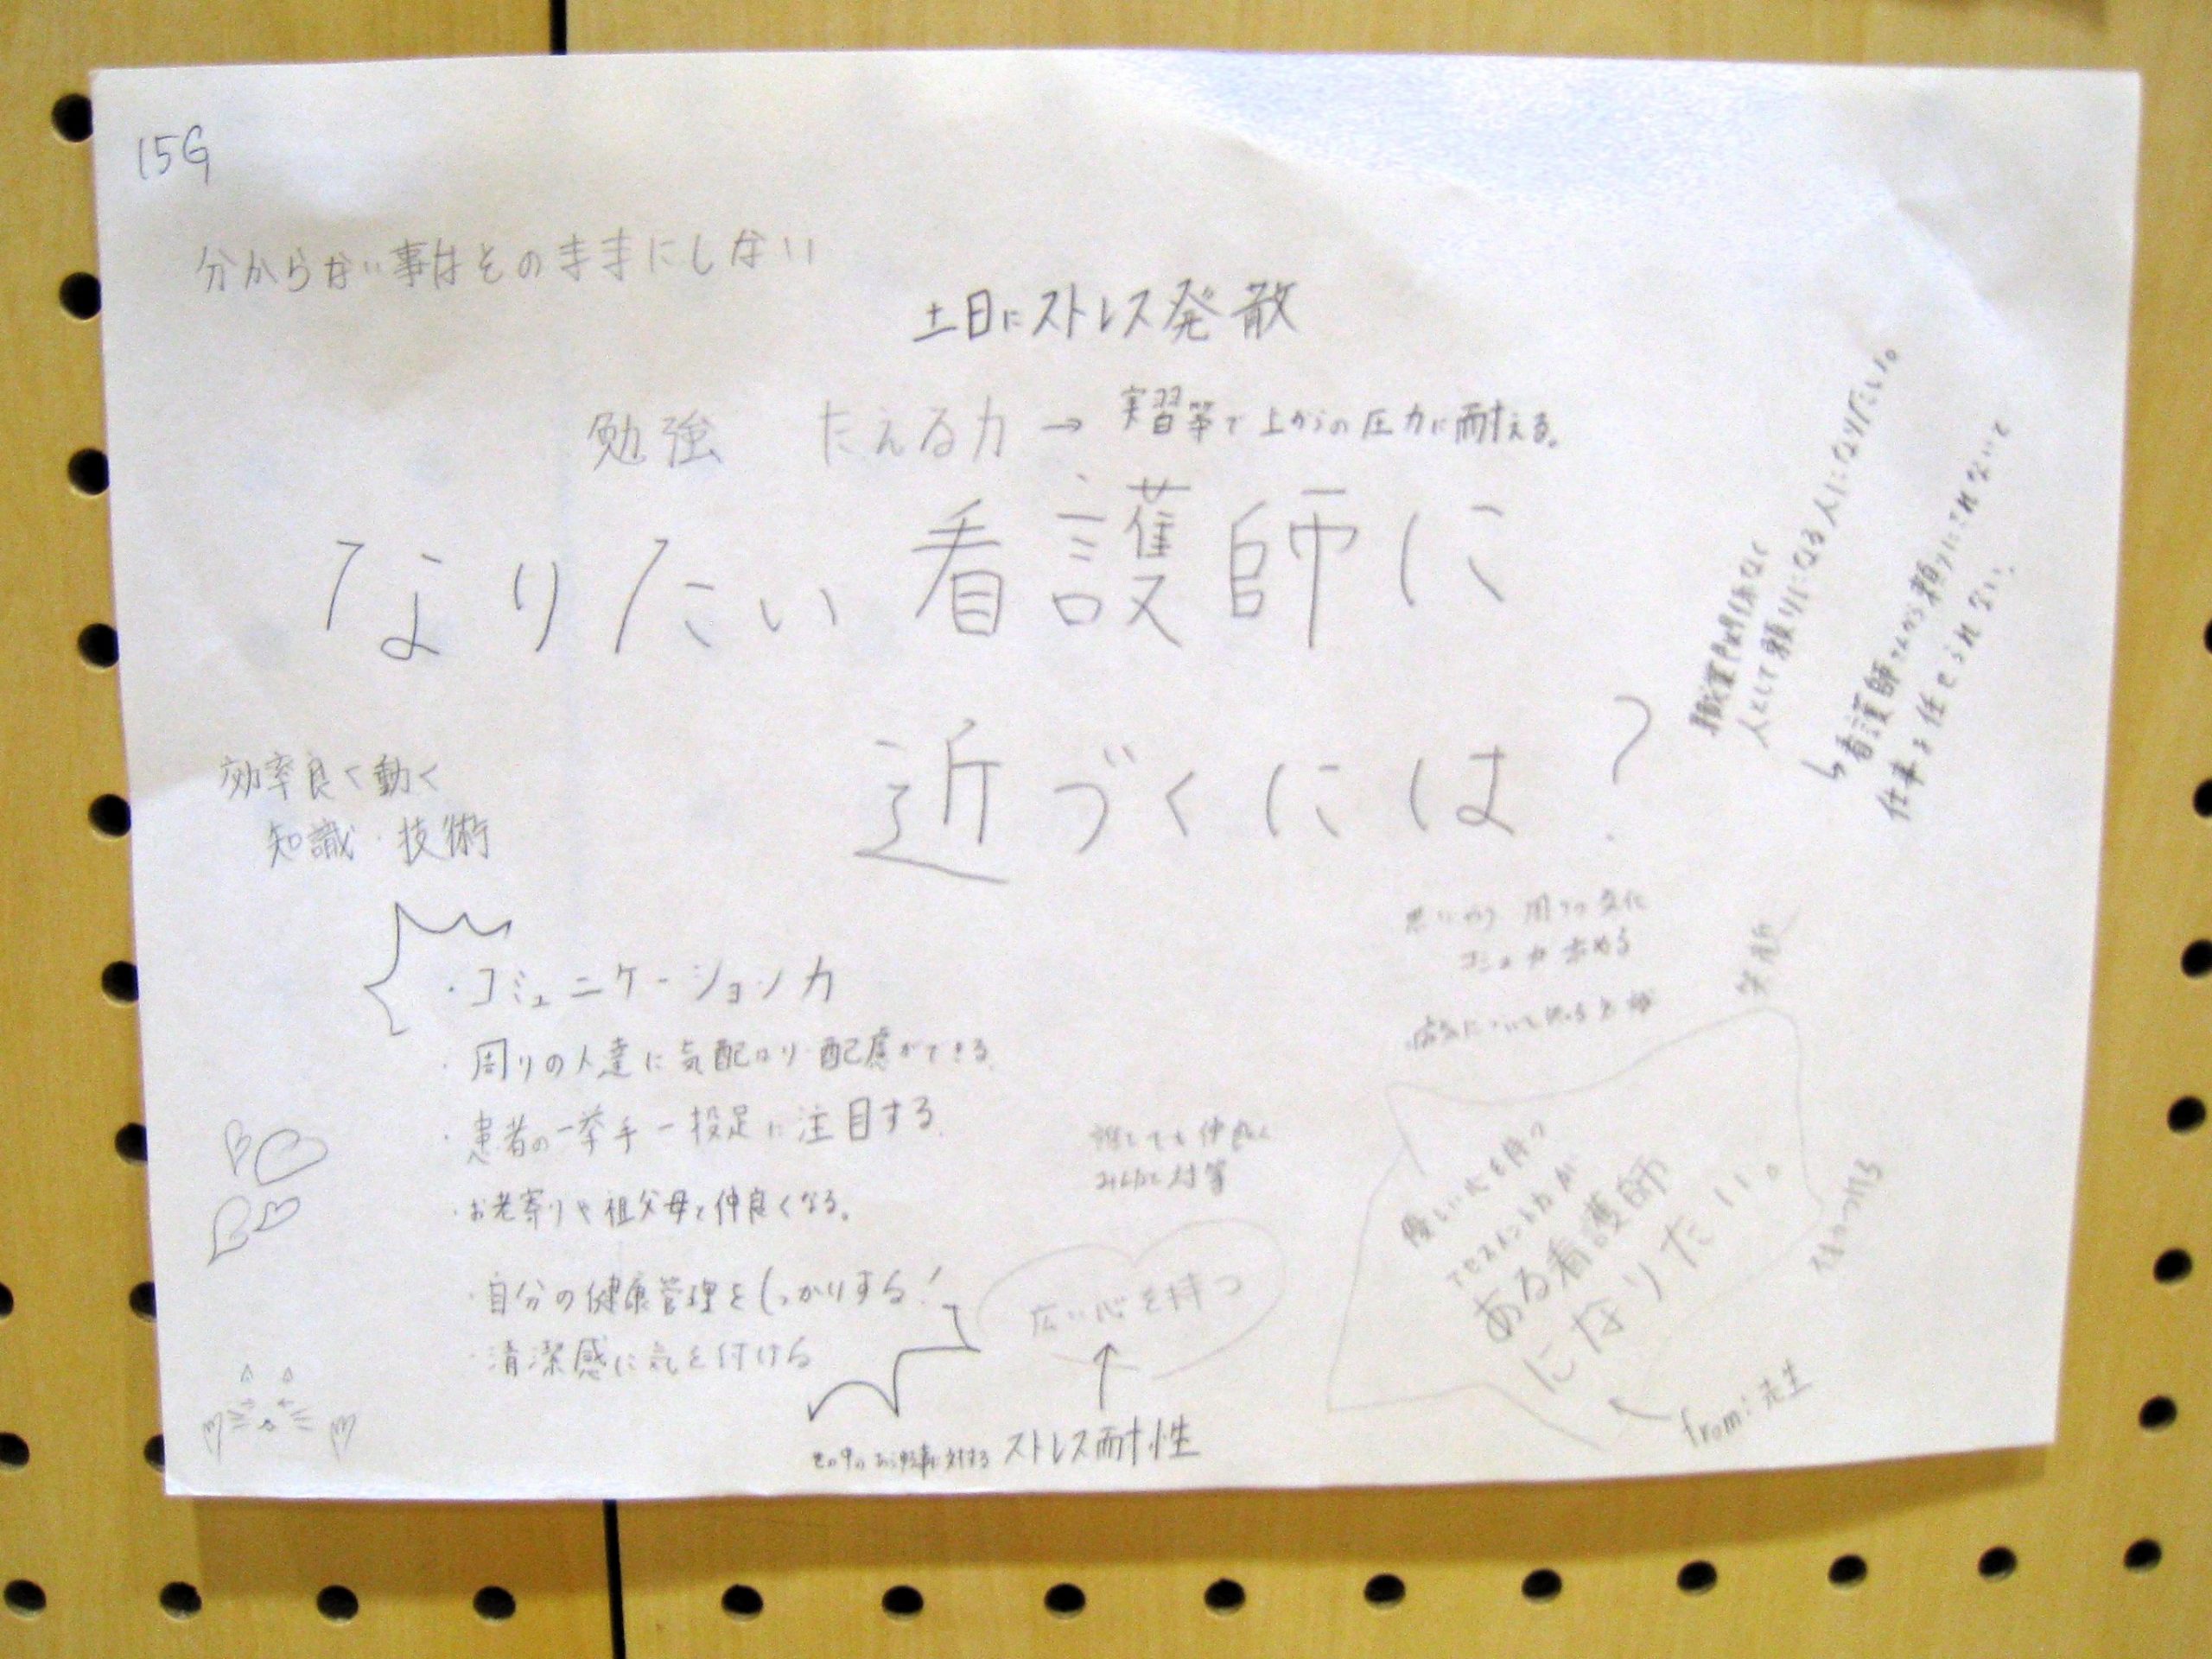 15G
分からない事はそのままにしない
土日にストレス発散
勉強 たえる力 → 実習等で上からの圧力に耐える。
なりたい看護師に
近づくには?
職業関係なく
人として頼りになる人になりたい。
↳看護師さんから頼りにされないと
仕事を任せられない。
効率良く動く
知識・技術
・コミュニケーション力
・周りの人達に気配り・配慮ができる。
・患者の一挙手一投足に注目する。
・お老寄りや祖父母と仲良くなる。
・自分の健康管理をしっかりする!
・清潔感に気を付ける
思いやり 周りの変化
コミュ力 求める
笑顔
誰とでも仲良く
みんな対等
広い心を持つ
↑
ストレス耐性
優しい心を持つ
アセスメント力が
ある看護師
になりたい。
from:先生